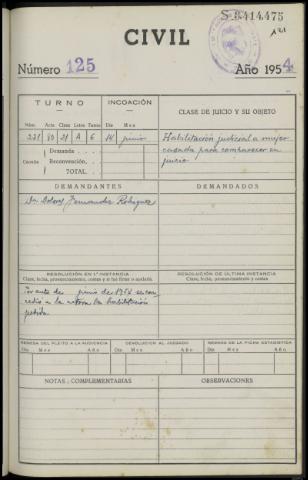 S-3414475
CIVIL
Número 125 Año 1954
TURNO INCOACIÓN CLASE DE JUICIO Y SU OBJETO
Núm. Clase Letra Tarifa Día Mes
221 A 6 14 junio Habilitación judicial a mujer
casada para comparecer en
juicio
Demanda
Cuantía Reconvención
TOTAL
DEMANDANTES DEMANDADOS
Da Dolores Fernandez Rodriguez
RESOLUCIÓN EN 1ª INSTANCIA RESOLUCIÓN DE ÚLTIMA INSTANCIA
Clase, fecha, pronunciamiento, costas y si fue firme o apelada Clase, fecha, pronunciamiento y costas
Por auto de junio de 1954 se con-
cedió a la actora la habilitación
pedida.
REMESA DEL PLEITO A LA AUDIENCIA DEVOLUCIÓN AL JUZGADO REMESA DE LA FICHA ESTADÍSTICA
Día Mes Año Día Mes Año Día Mes Año
NOTAS COMPLEMENTARIAS OBSERVACIONES